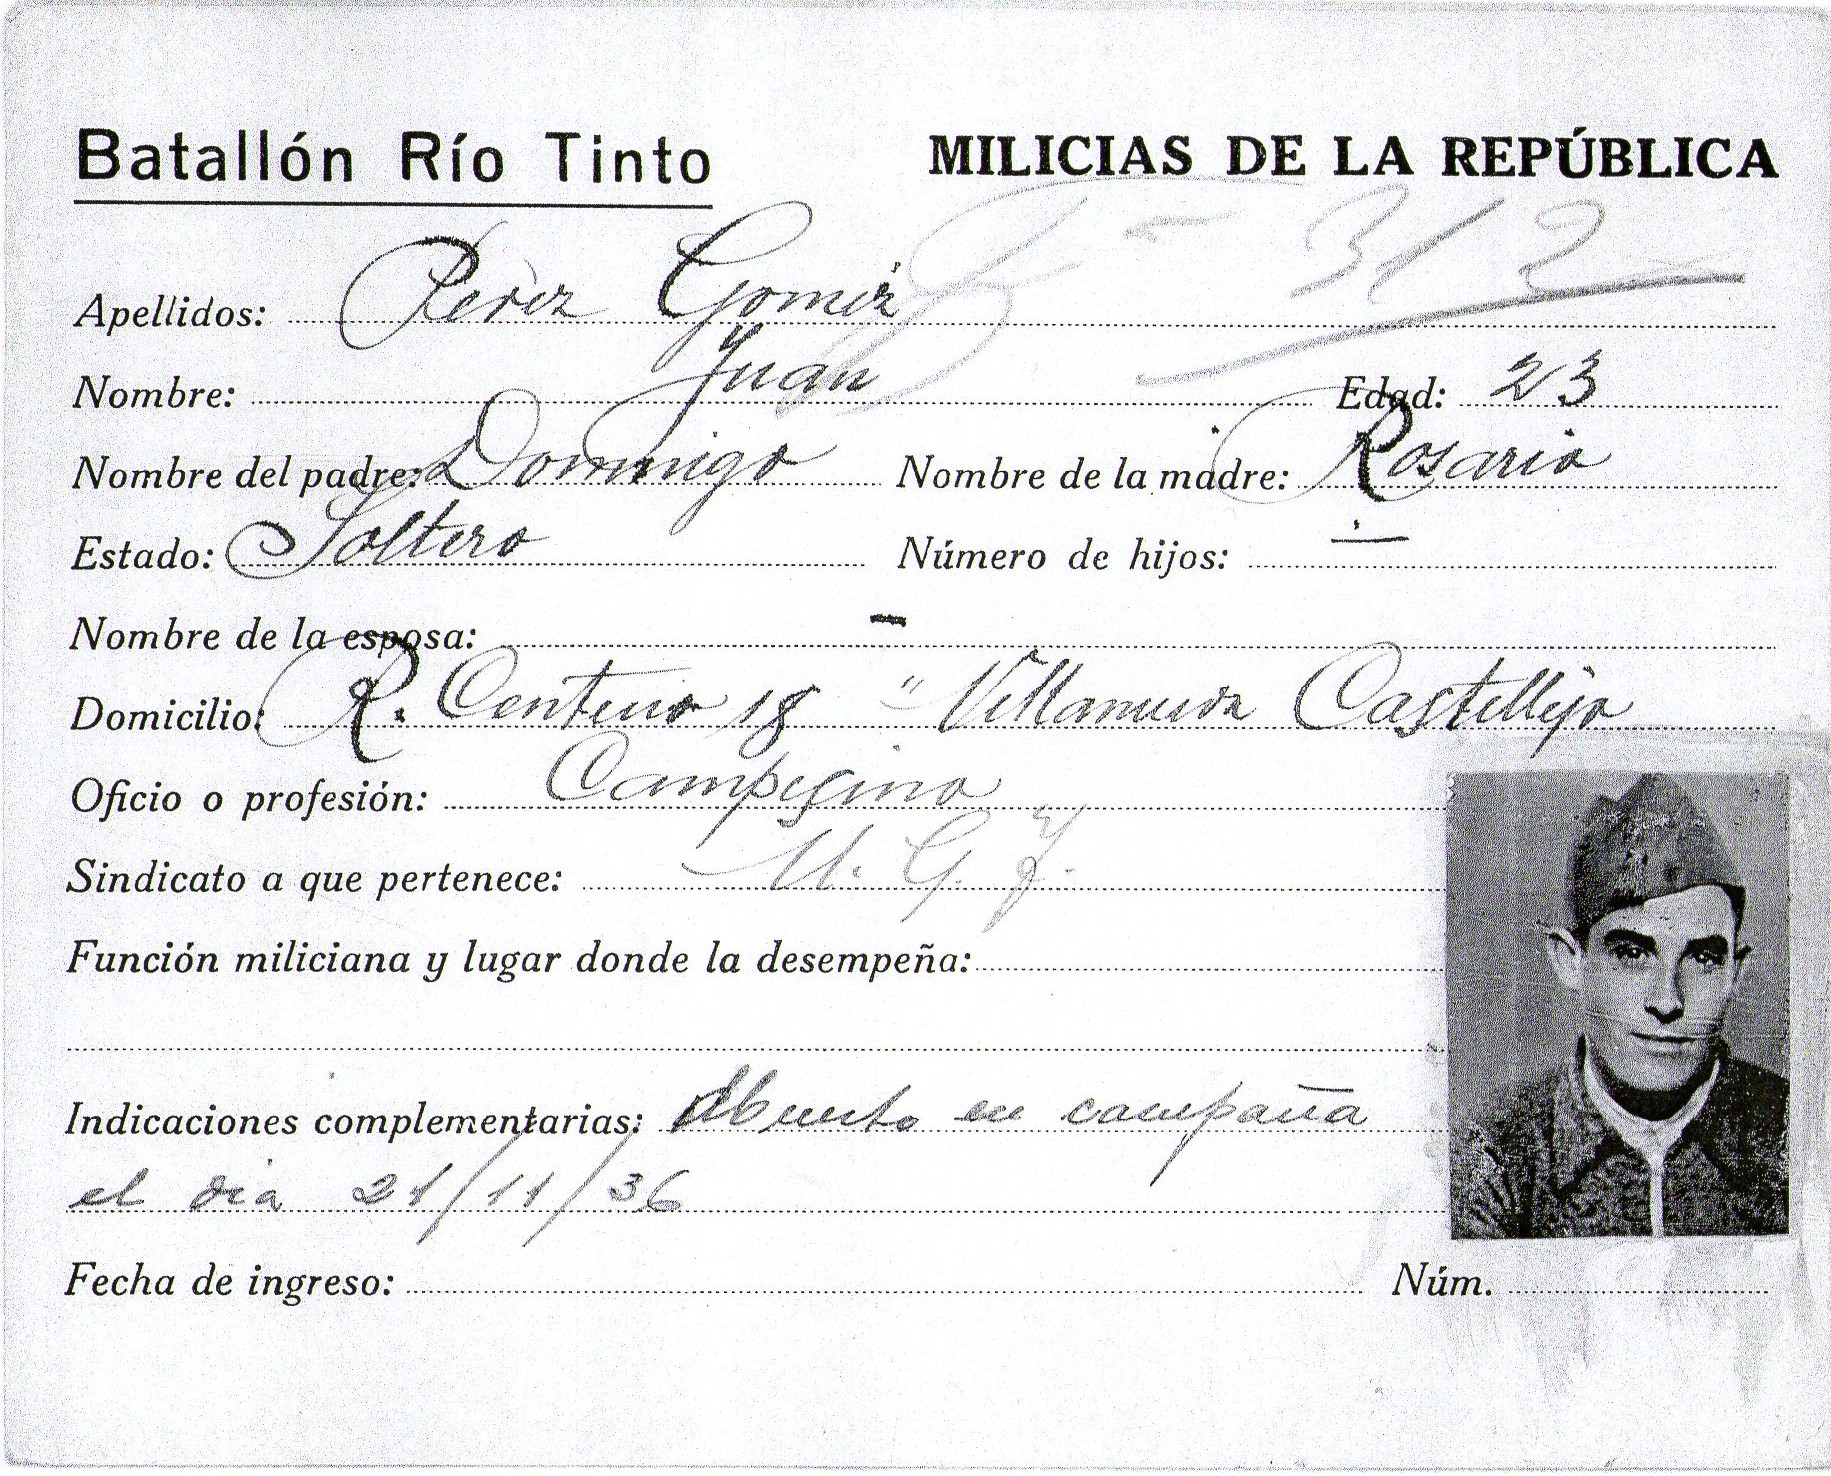 Batallón Río Tinto MILICIAS DE LA REPÚBLICA
312
Apellidos: Pérez Goméz
Nombre: Juan Edad: 23
Nombre del padre: Domingo Nombre de la madre: Rosario
Estado: Soltero Número de hijos: —
Nombre de la esposa: –
Domicilio: R. Centeno 18 " Villanueva Castellejo
Oficio o profesión: Campesino
Sindicato a que pertenece: U. G. T.
Función miliciana y lugar donde la desempeña:
Indicaciones complementarias: Muerto en campaña
el dia 21/11/36
Fecha de ingreso: Núm.